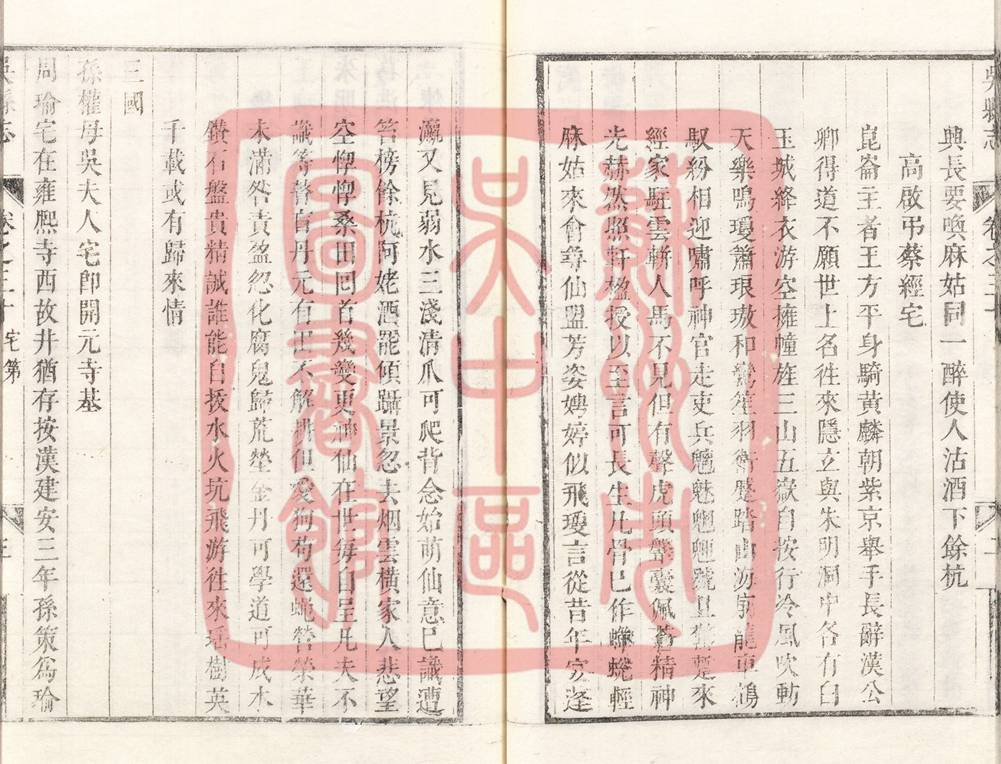 吳縣志
興長要喚麻姑同一醉使人沽酒下餘杭
高啟弔蔡經宅
崑崙王者王方平身騎黃麟朝紫京舉手長辭漢公
卿得道不願世上名徃來隱立與朱明洞中各有白
玉城絳衣游空擁幢旌三山五嶽自按行冷風吹動
天樂鳴瓊簫琅璈和鸞笙羽衛蹙踏山海驚龍車鶴
馭紛相迎嘯呼神官走吏兵魑魅魍魎號且驚蹔來
經家駐雲軿人馬不見但有聲虎頭鞶囊佩蒼精神
光赫然照軒楹授以至言可長生凡骨已作蟬蛻輕
麻姑來會尋仙盟芳姿娉婷似飛瓊言從昔年宴蓬
瀛又見弱水三淺清爪可爬背念始萌仙意已識遭
笞榜餘杭阿姥酒罷傾躡景忽去烟雲橫家人悲望
空惸惸桑田回首幾變更神仙在世每自呈凡夫不
識等瞽盲丹元有田不解耕但愛狗苟還蠅營榮華
未滿咎責盈忽化腐鬼歸荒塋金丹可學道可成木
鑽石盤貴精誠誰能自拔水火坑飛游徃來琪樹英
千載或有歸來情
三國
孫權母吳夫人宅卽開元寺基
周瑜宅在雍熙寺西故井猶存按漢建安三年孫策為瑜
吳縣志
卷之三十
宅第
三
蘇州市
吳中區
圖書館